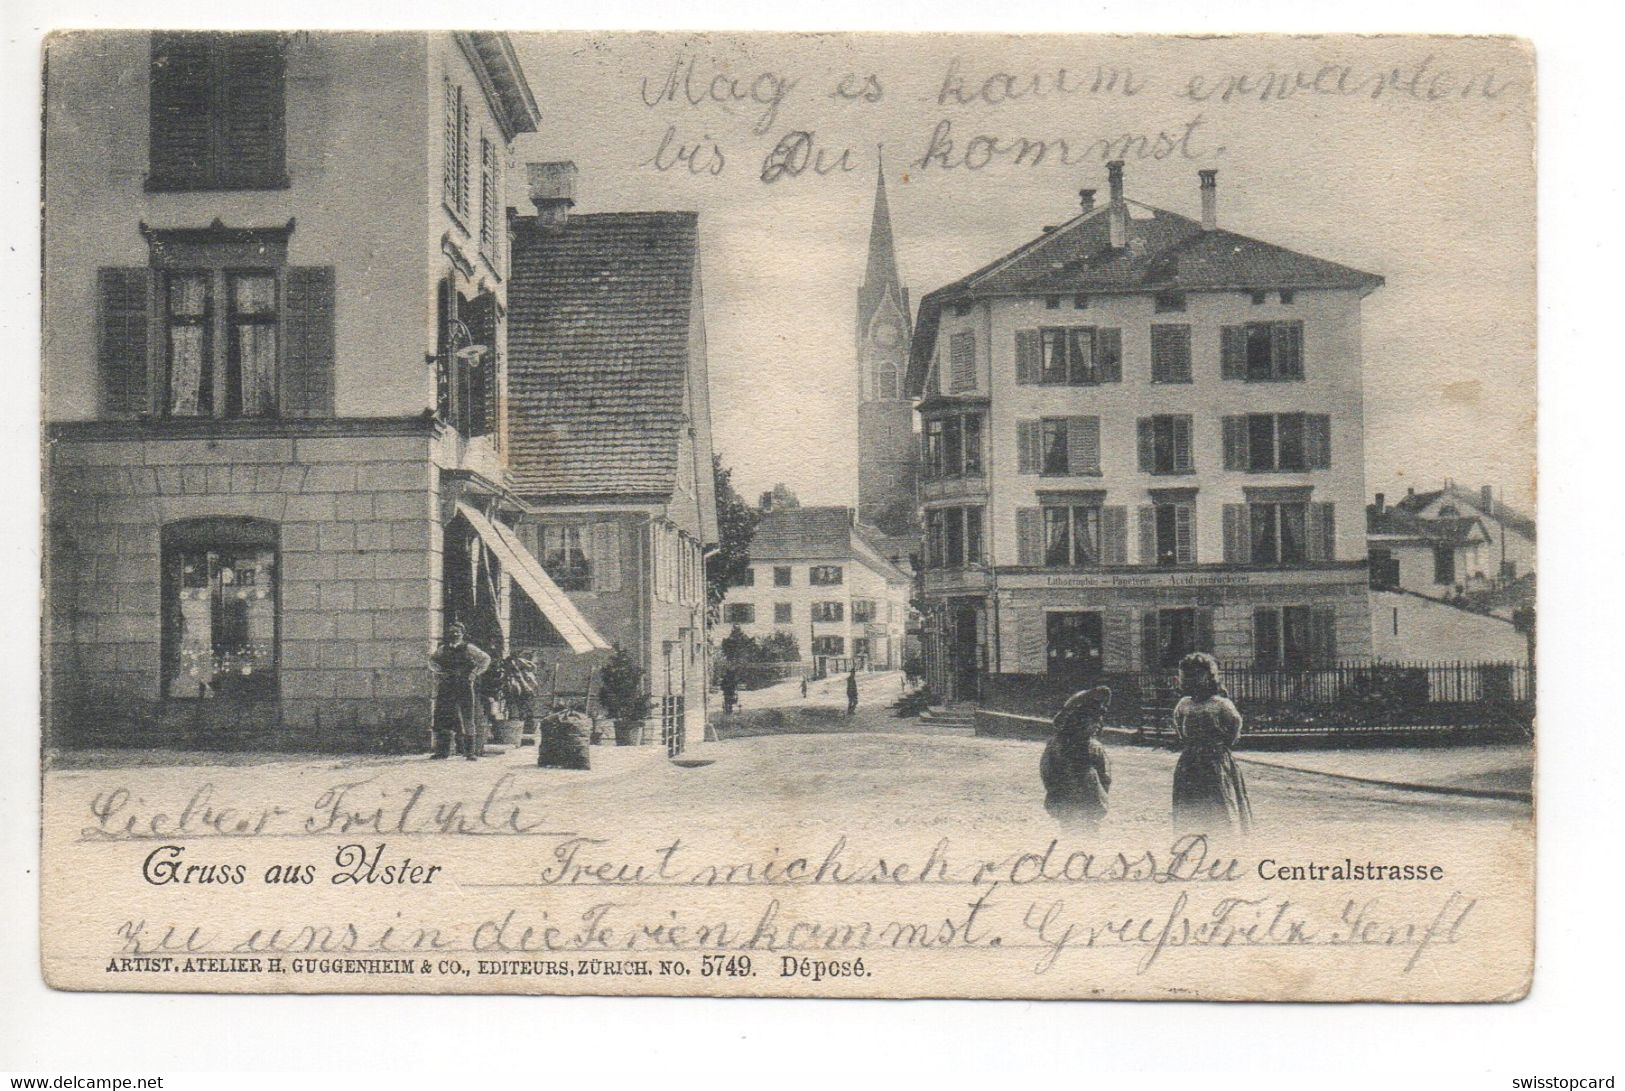 Mag es kaum erwarten
bis Du kommst.
Lithographie - Papeterie - Accidenzdruckerei
Lieber Fritzli
Gruss aus Uster Freut mich sehr dass Du Centralstrasse
zu uns in die Ferien kommst. Gruß Fritz Senft
ARTIST. ATELIER H. GUGGENHEIM & CO., EDITEURS, ZÜRICH. NO. 5749. Déposé.
www.delcampe.net
swisstopcard